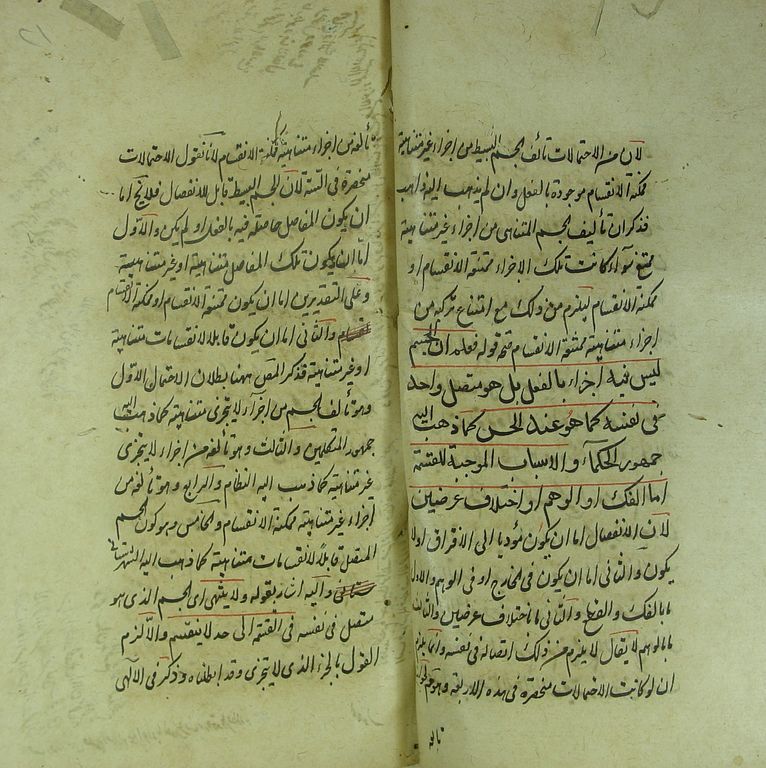 لان من الاحتمالات تألف الجسم البسيط من اجزاء غير متناهية
ممكنة الانقسام موجودة بالفعل وان لم يذهب اليه ذاهب
فذكر ان تأليف الجسم المتناهى من اجزاء غير متناهية
ممتنع سوآء كانت تلك الاجزاء ممتنعة الانقسام او
ممكنة الانقسام ليلزم من ذلك مع امتناع تركبه من
اجزاء متناهية ممتنعة الانقسام قوله فعلم ان الجسم
ليس فيه اجزاء بالفعل بل هو متصل واحد
فى نفسه كما هو عند الحس كما ذهب اليه
جمهور الحكماء والاسباب الموجبة للقسمة
اما الفك او الوهم او اختلاف عرضين
لان الانفصال اما ان يكون مؤديا الى الافتراق اولا
يكون والثانى اما ان يكون فى الخارج او فى الوهم والاول
بالفك والقطع والثانى باختلاف عرضين والثالث
بالوهم لا يقال لا يلزم من ذلك اتصاله فى نفسه وانما يلزم
ان لو كانت الاحتمالات منحصرة فى هذه الاربعة وهو
تألفه من اجزاء متناهية ممكنة الانقسام لانا نقول الاحتمالات
منحصرة فى الستة لان الجسم البسيط قابل للانفصال فلا يخ اما
ان يكون المفاصل حاصلة فيه بالفعل او لم يكن والاول
اما ان يكون تلك المفاصل متناهية او غير متناهية
وعلى التقديرين اما ان يكون ممتنعة الانقسام او ممكنة الانقسام
والثانى اما ان يكون قابلا لانقسامات متناهية
او غير متناهية فذكر المص ههنا بطلان الاحتمال الاول
وهو تألف الجسم من اجزآء لا يتجزى متناهية كما ذهب اليه
جمهور المتكلمين والثالث وهو تألفه من اجزاء لا يتجزى
غير متناهية كما ذهب اليه النظام والرابع وهو تألفه من
اجزاء غير متناهية ممكنة الانقسام والخامس وهو كون الجسم
المتصل قابلا لانقسامات متناهية كما ذهب اليه الشهرستانى
واليه اشار بقوله ولا ينتهى اى الجسم الذى هو
متصل فى نفسه فى القسمة الى حد لا ينقسم والا لزم
القول بالجزء الذى لا يتجزى وقد ابطلناه وذكر فى الالهى